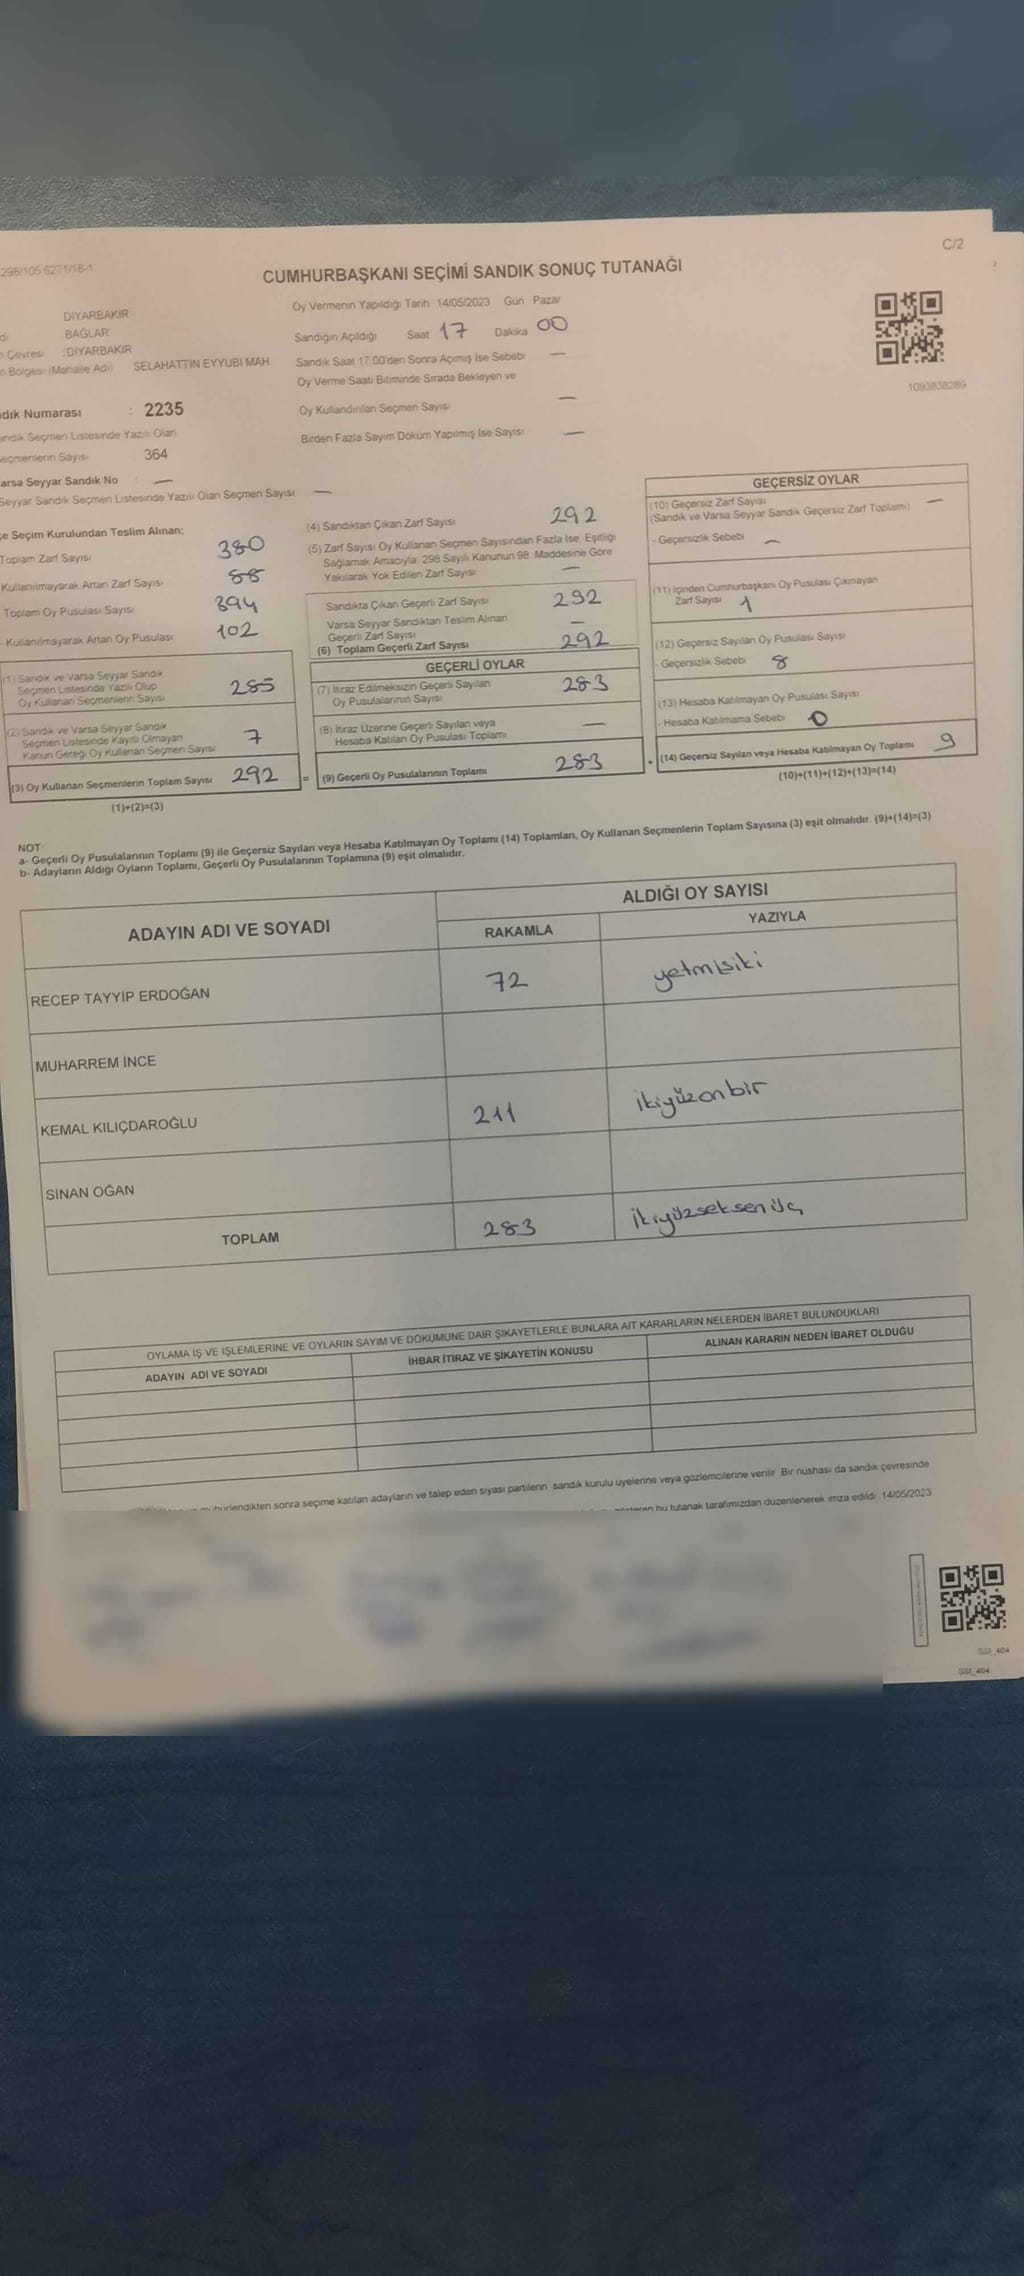 C/2
298/105 6271/18-1
CUMHURBAŞKANI SEÇİMİ SANDIK SONUÇ TUTANAĞI
DİYARBAKIR
BAĞLAR
Çevresi : DİYARBAKIR
Bölgesi (Mahalle Adı) SELAHATTIN EYYUBI MAH
dık Numarası : 2235
andık Seçmen Listesinde Yazılı Olan
eçmenlerin Sayısı 364
arsa Seyyar Sandık No : —
Seyyar Sandık Seçmen Listesinde Yazılı Olan Seçmen Sayısı —
Oy Vermenin Yapıldığı Tarih 14/05/2023 Gün Pazar
Sandığın Açıldığı Saat 17 Dakika 00
Sandık Saat 17.00'den Sonra Açımış İse Sebebi —
Oy Verme Saati Bitiminde Sırada Bekleyen ve
Oy Kullandırılan Seçmen Sayısı —
Birden Fazla Sayım Döküm Yapılmış İse Sayısı —
1093838289
e Seçim Kurulundan Teslim Alınan;
Toplam Zarf Sayısı 380
Kullanılmayarak Artan Zarf Sayısı 88
Toplam Oy Pusulası Sayısı 394
Kullanılmayarak Artan Oy Pusulası 102
(1) Sandık ve Varsa Seyyar Sandık
Seçmen Listesinde Yazılı Olup
Oy Kullanan Seçmenlerin Sayısı 285
(2) Sandık ve Varsa Seyyar Sandık
Seçmen Listesinde Kayıtlı Olmayan
Kanun Gereği Oy Kullanan Seçmen Sayısı 7
(3) Oy Kullanan Seçmenlerin Toplam Sayısı 292
(1)+(2)=(3)
(4) Sandıktan Çıkan Zarf Sayısı 292
(5) Zarf Sayısı Oy Kullanan Seçmen Sayısından Fazla İse, Eşitliği
Sağlamak Amacıyla, 298 Sayılı Kanunun 98. Maddesine Göre
Yakılarak Yok Edilen Zarf Sayısı —
Sandıkta Çıkan Geçerli Zarf Sayısı 292
Varsa Seyyar Sandıktan Teslim Alınan
Geçerli Zarf Sayısı —
(6) Toplam Geçerli Zarf Sayısı 292
GEÇERLİ OYLAR
(7) İtiraz Edilmeksizin Geçerli Sayılan
Oy Pusulalarının Sayısı 283
(8) İtiraz Üzerine Geçerli Sayılan veya
Hesaba Katılan Oy Pusulası Toplamı —
= (9) Geçerli Oy Pusulalarının Toplamı 283
GEÇERSİZ OYLAR
(10) Geçersiz Zarf Sayısı —
(Sandık ve Varsa Seyyar Sandık Geçersiz Zarf Toplamı)
- Geçersizlik Sebebi —
(11) İçinden Cumhurbaşkanı Oy Pusulası Çıkmayan
Zarf Sayısı 1
(12) Geçersiz Sayılan Oy Pusulası Sayısı
- Geçersizlik Sebebi 8
(13) Hesaba Katılmayan Oy Pusulası Sayısı
- Hesaba Katılmama Sebebi 0
+ (14) Geçersiz Sayılan veya Hesaba Katılmayan Oy Toplamı 9
(10)+(11)+(12)+(13)=(14)
NOT
a- Geçerli Oy Pusulalarının Toplamı (9) ile Geçersiz Sayılan veya Hesaba Katılmayan Oy Toplamı (14) Toplamları, Oy Kullanan Seçmenlerin Toplam Sayısına (3) eşit olmalıdır. (9)+(14)=(3)
b- Adayların Aldığı Oyların Toplamı, Geçerli Oy Pusulalarının Toplamına (9) eşit olmalıdır.
ADAYIN ADI VE SOYADI ALDIĞI OY SAYISI
RAKAMLA YAZIYLA
RECEP TAYYİP ERDOĞAN 72 yetmişiki
MUHARREM İNCE
KEMAL KILIÇDAROĞLU 211 ikiyüzonbir
SİNAN OĞAN
TOPLAM 283 ikiyüzseksenüç
OYLAMA İŞ VE İŞLEMLERİNE VE OYLARIN SAYIM VE DÖKÜMÜNE DAİR ŞİKAYETLERLE BUNLARA AİT KARARLARIN NELERDEN İBARET BULUNDUKLARI
ADAYIN ADI VE SOYADI İHBAR İTİRAZ VE ŞİKAYETİN KONUSU ALINAN KARARIN NEDEN İBARET OLDUĞU
mühürlendikten sonra seçime katılan adayların ve talep eden siyasi partilerin sandık kurulu üyelerine veya gözlemcilerine verilir. Bir nüshası da sandık çevresinde
gösteren bu tutanak tarafımızdan düzenlenerek imza edildi. 14/05/2023
SSI_404
SSI_404